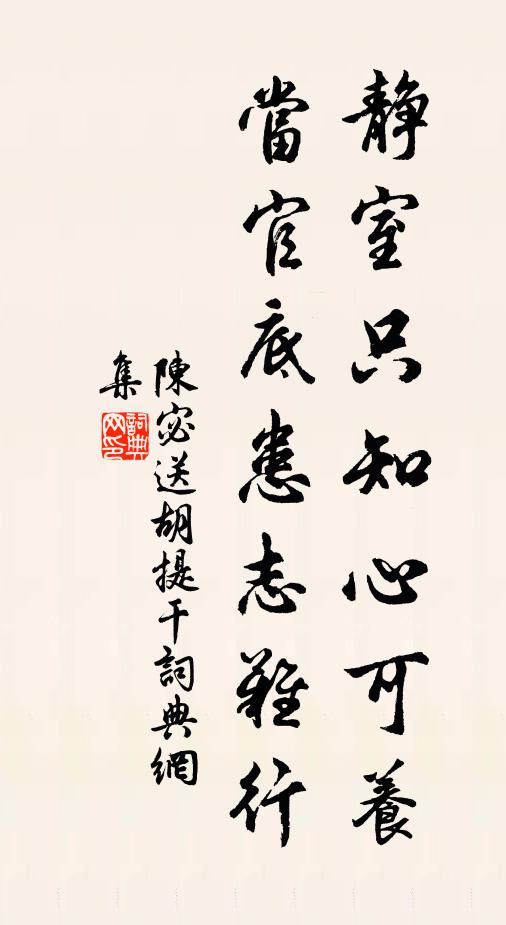 靜室只知心可養
當官底患志難行
陳宓送胡提干詞典網
集
詞典
网印